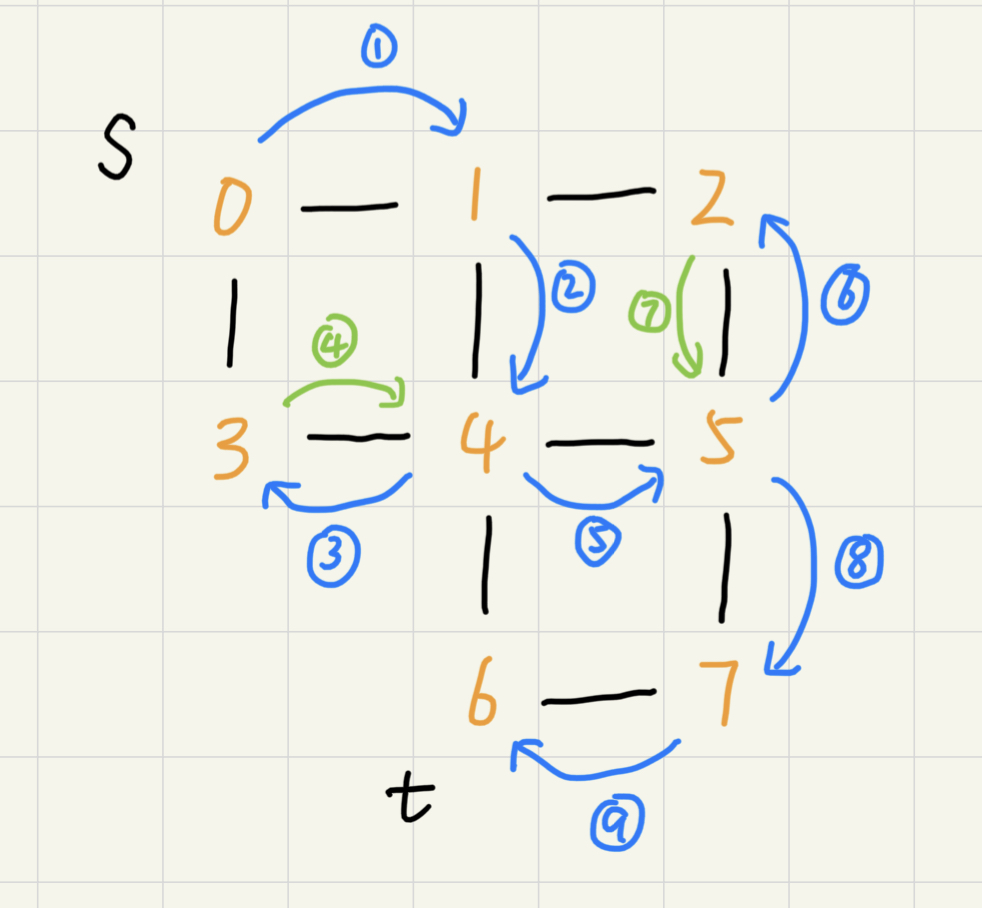 ①
S
0 — 1 — 2
② ⑦ ⑥
④
3 — 4 — 5
③ ⑤ ⑧
6 — 7
t
⑨